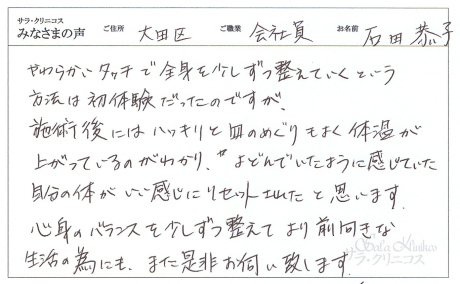 サラ・クリニコス
みなさまの声 ご住所 大田区 ご職業 会社員 お名前 石田 恭子
やわらかいタッチで全身を少しずつ整えていくという
方法は初体験だったのですが、
施術後にはハッキリと血のめぐりもよく体温が
上がっているのがわかり、よどんでいたように感じていた
自分の体がいい感じにリセットされたと思います。
心身のバランスを少しずつ整えてより前向きな
生活の為にも、また是非お伺い致します。
Sala Klinikos
サラ・クリニコス